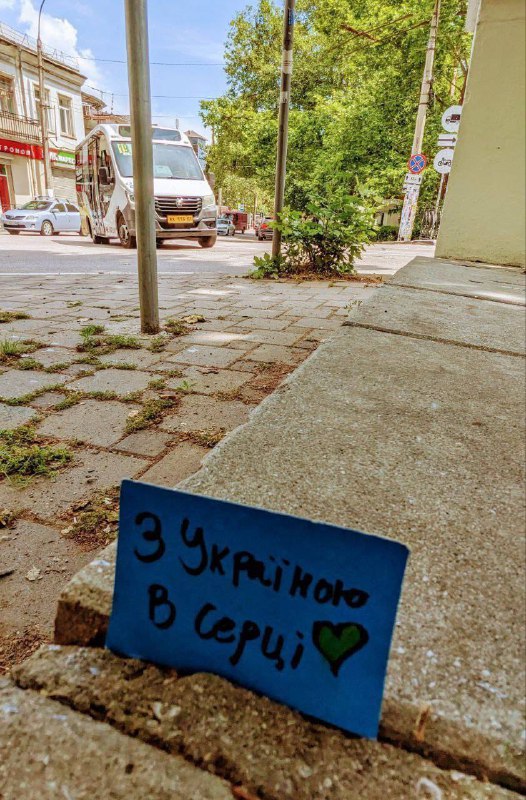 З Україною
в серці